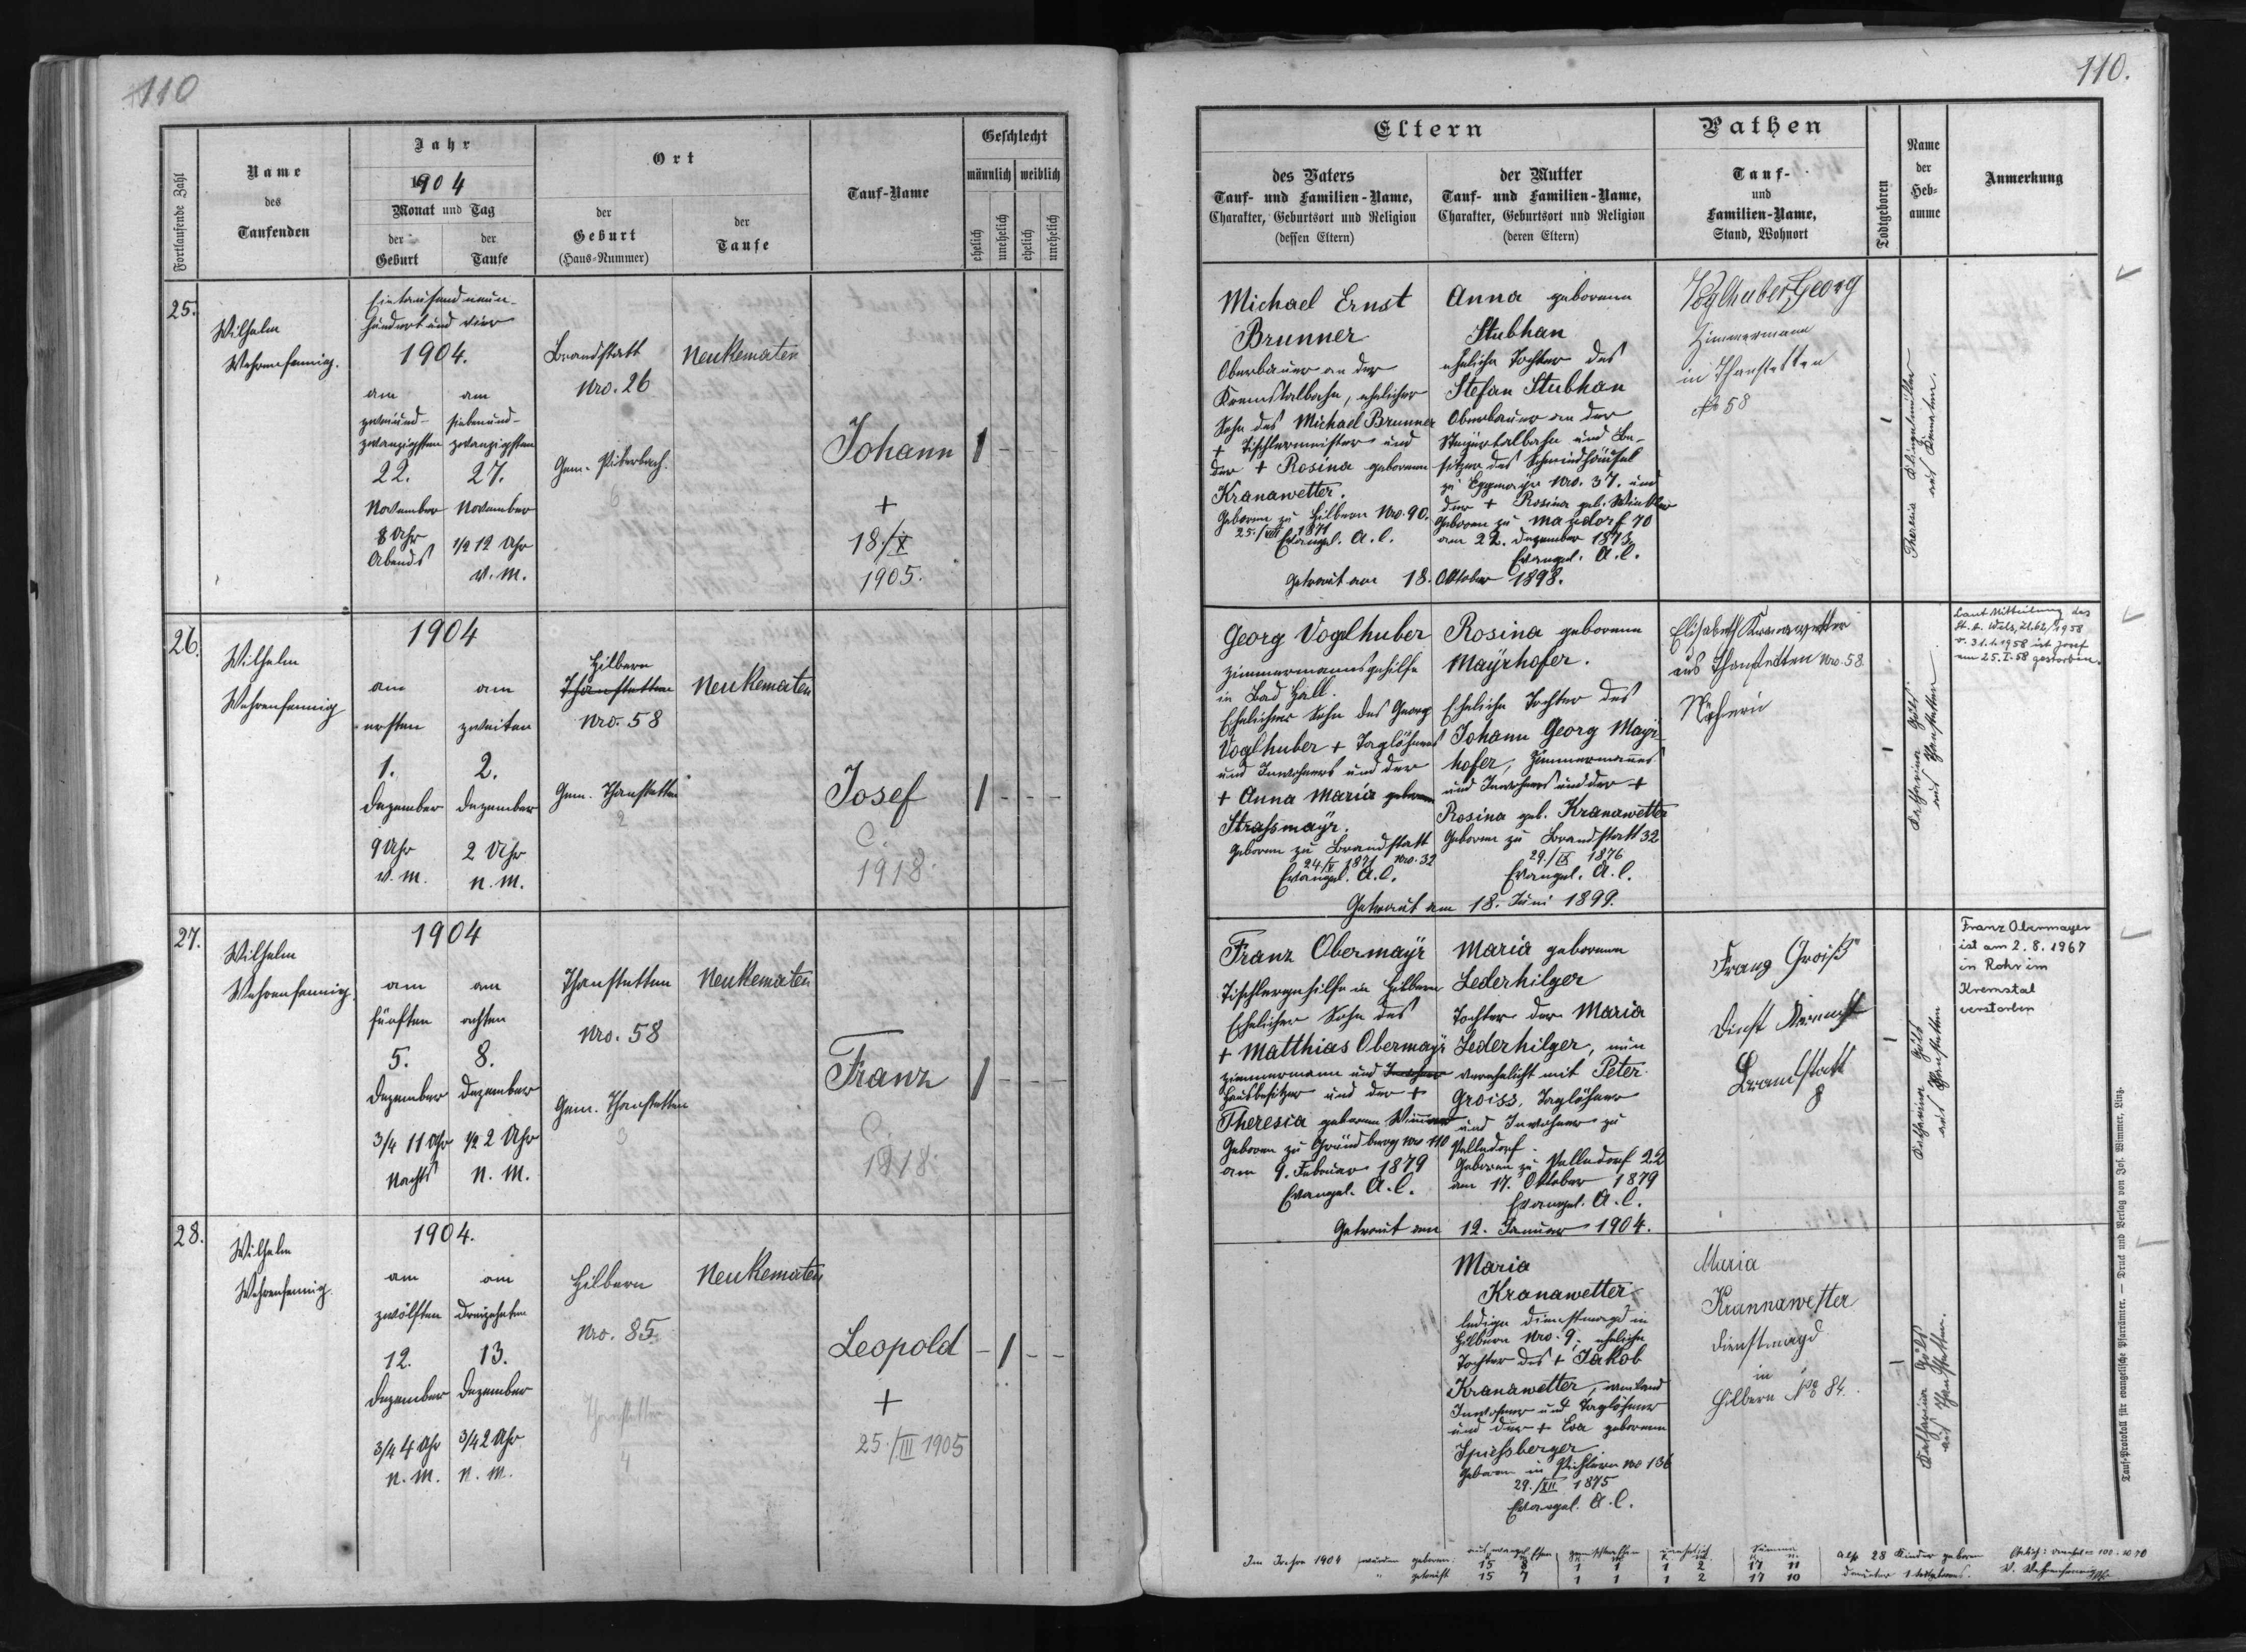 110
Fortlaufende Zahl
Name
des
Taufenden
Jahr
1904
Monat und Tag
der
Geburt
der
Taufe
Ort
der
Geburt
(Haus-Nummer)
der
Taufe
Tauf-Name
Geschlecht
männlich
weiblich
ehelich
unehelich
ehelich
unehelich
25.
Wilhelm
Wehrenfennig.
Eintausendneun-
hundert und vier
1904.
am
zweiund-
zwanzigsten
22.
November
8 Uhr
Abends
am
siebenund-
zwanzigsten
27.
November
1/2 12 Uhr
V. M.
Brandstatt
Nro. 26
Gem. Piberbach.
6
Neukematen
Johann
+
18./X
1905.
1 - - -
26.
Wilhelm
Wehrenfennig
1904
am
ersten
1.
Dezember
9 Uhr
V. M.
am
zweiten
2.
Dezember
2 Uhr
N. M.
Hilbern
Thanstetten
Nro. 58
Gem. Thanstetten
2
Neukematen
Josef
C.
1918.
1 - - -
27.
Wilhelm
Wehrenfennig.
1904
am
fünften
5.
Dezember
3/4 11 Uhr
Nachts
am
achten
8.
Dezember
1/2 2 Uhr
N. M.
Thanstetten
Nro. 58
Gem. Thanstetten
3
Neukematen
Franz
C.
1918.
1 - - -
28.
Wilhelm
Wehrenfennig.
1904.
am
zwölften
12.
Dezember
3/4 4 Uhr
N. M.
am
dreizehnten
13.
Dezember
3/4 2 Uhr
N. M.
Hilbern
Nro. 85.
Thanstetten
4
Neukematen
Leopold
+
25./III 1905
- 1 - -
110.
Eltern
des Vaters
Tauf- und Familien-Name,
Charakter, Geburtsort und Religion
(dessen Eltern)
der Mutter
Tauf- und Familien-Name,
Charakter, Geburtsort und Religion
(deren Eltern)
Pathen
Tauf-
und
Familien-Name,
Stand, Wohnort
Todtgeboren
Name
der
Heb-
amme
Anmerkung
Michael Ernst
Brunner
Oberbauer an der
Kremstalbahn, ehelicher
Sohn des Michael Brunner
+ Tischlermeister und
der + Rosina geborenen
Kranawetter.
Geboren zu Hilbern Nro. 90.
25./VIII 1871
Evangel. A. C.
Anna geborene
Stubhan
eheliche Tochter des
Stefan Stubhan
Oberbauer an der
Steyrtalbahn und Be-
sitzer des Schmiedhäusel
zu Eggmayr Nro. 37. und
der + Rosina geb. Winkler
Geboren zu Mandorf 70
am 22. Dezember 1873
Evangel. A. C.
Getraut am 18. Oktober 1898.
Voglhuber Georg
Zimmermann
in Thanstetten
No 58
Theresia Klingelmüller
aus Kematen.
Georg Voglhuber
Zimmermannsgehilfe
in Bad Hall.
Ehelicher Sohn des Georg
Voglhuber + Taglöhners
und Inwohners und der
+ Anna Maria geborenen
Strassmayr.
Geboren zu Brandstatt
24./V 1871 Nro. 32
Evangel. A. C.
Rosina geborene
Mayrhofer.
Eheliche Tochter des
Johann Georg Mayr-
hofer, Zimmermannes
und Inwohners und der +
Rosina geb. Kranawetter
Geboren zu Brandstatt 32
29./IX 1876
Evangel. A. C.
Getraut am 18. Juni 1899.
Elisabeth Kranawetter
aus Thanstetten Nro. 58.
Näherin
Katharina Göls
aus Thanstetten
Laut Mitteilung des
St. A. Wels, Zl. 62/1958
v. 31.1.1958 ist Josef
am 25.I.58 gestorben.
Franz Obermayr
Tischlergehilfe in Hilbern
Ehelicher Sohn des
+ Matthias Obermayr
Zimmermann und Inwohner
Hausbesitzer und der +
Theresia geborenen Wimmer
Geboren zu Gründberg Nro 110
am 9. Februar 1879
Evangel. A. C.
Maria geborene
Lederhilger
Tochter der Maria
Lederhilger, nun
verehelicht mit Peter
Groiss, Taglöhner
und Inwohner zu
Pellndorf.
Geboren zu Pellndorf 22
am 17. Oktober 1879
Evangel. A. C.
Getraut am 12. Januar 1904.
Franz Groiß
Dienst Knecht
Brandstatt
8
Katharina Göls
aus Thanstetten
Franz Obermayer
ist am 2.8.1967
in Rohr im
Kremstal
verstorben
Maria
Kranawetter
ledige Dienstmagd in
Hilbern Nro. 9, eheliche
Tochter des + Jakob
Kranawetter, weiland
Inwohner und Taglöhner
und der + Eva geborenen
Spiessberger
Geboren in Pichlern No 136
29./XII 1875
Evangel. A. C.
Maria
Krannawetter
Dienstmagd
in
Hilbern No 84.
Katharina Göls
aus Thanstetten.
Im Jahre 1904 wurden geboren: 15 8 1 1 1 2 17 11 also 28 Kinder geboren
" getauft 15 7 1 1 1 2 17 10 darunter 1 totgeboren. W. Wehrenfennig
Tauf-Protokoll für evangelische Pfarrämter. — Druck und Verlag von Jos. Wimmer, Linz.